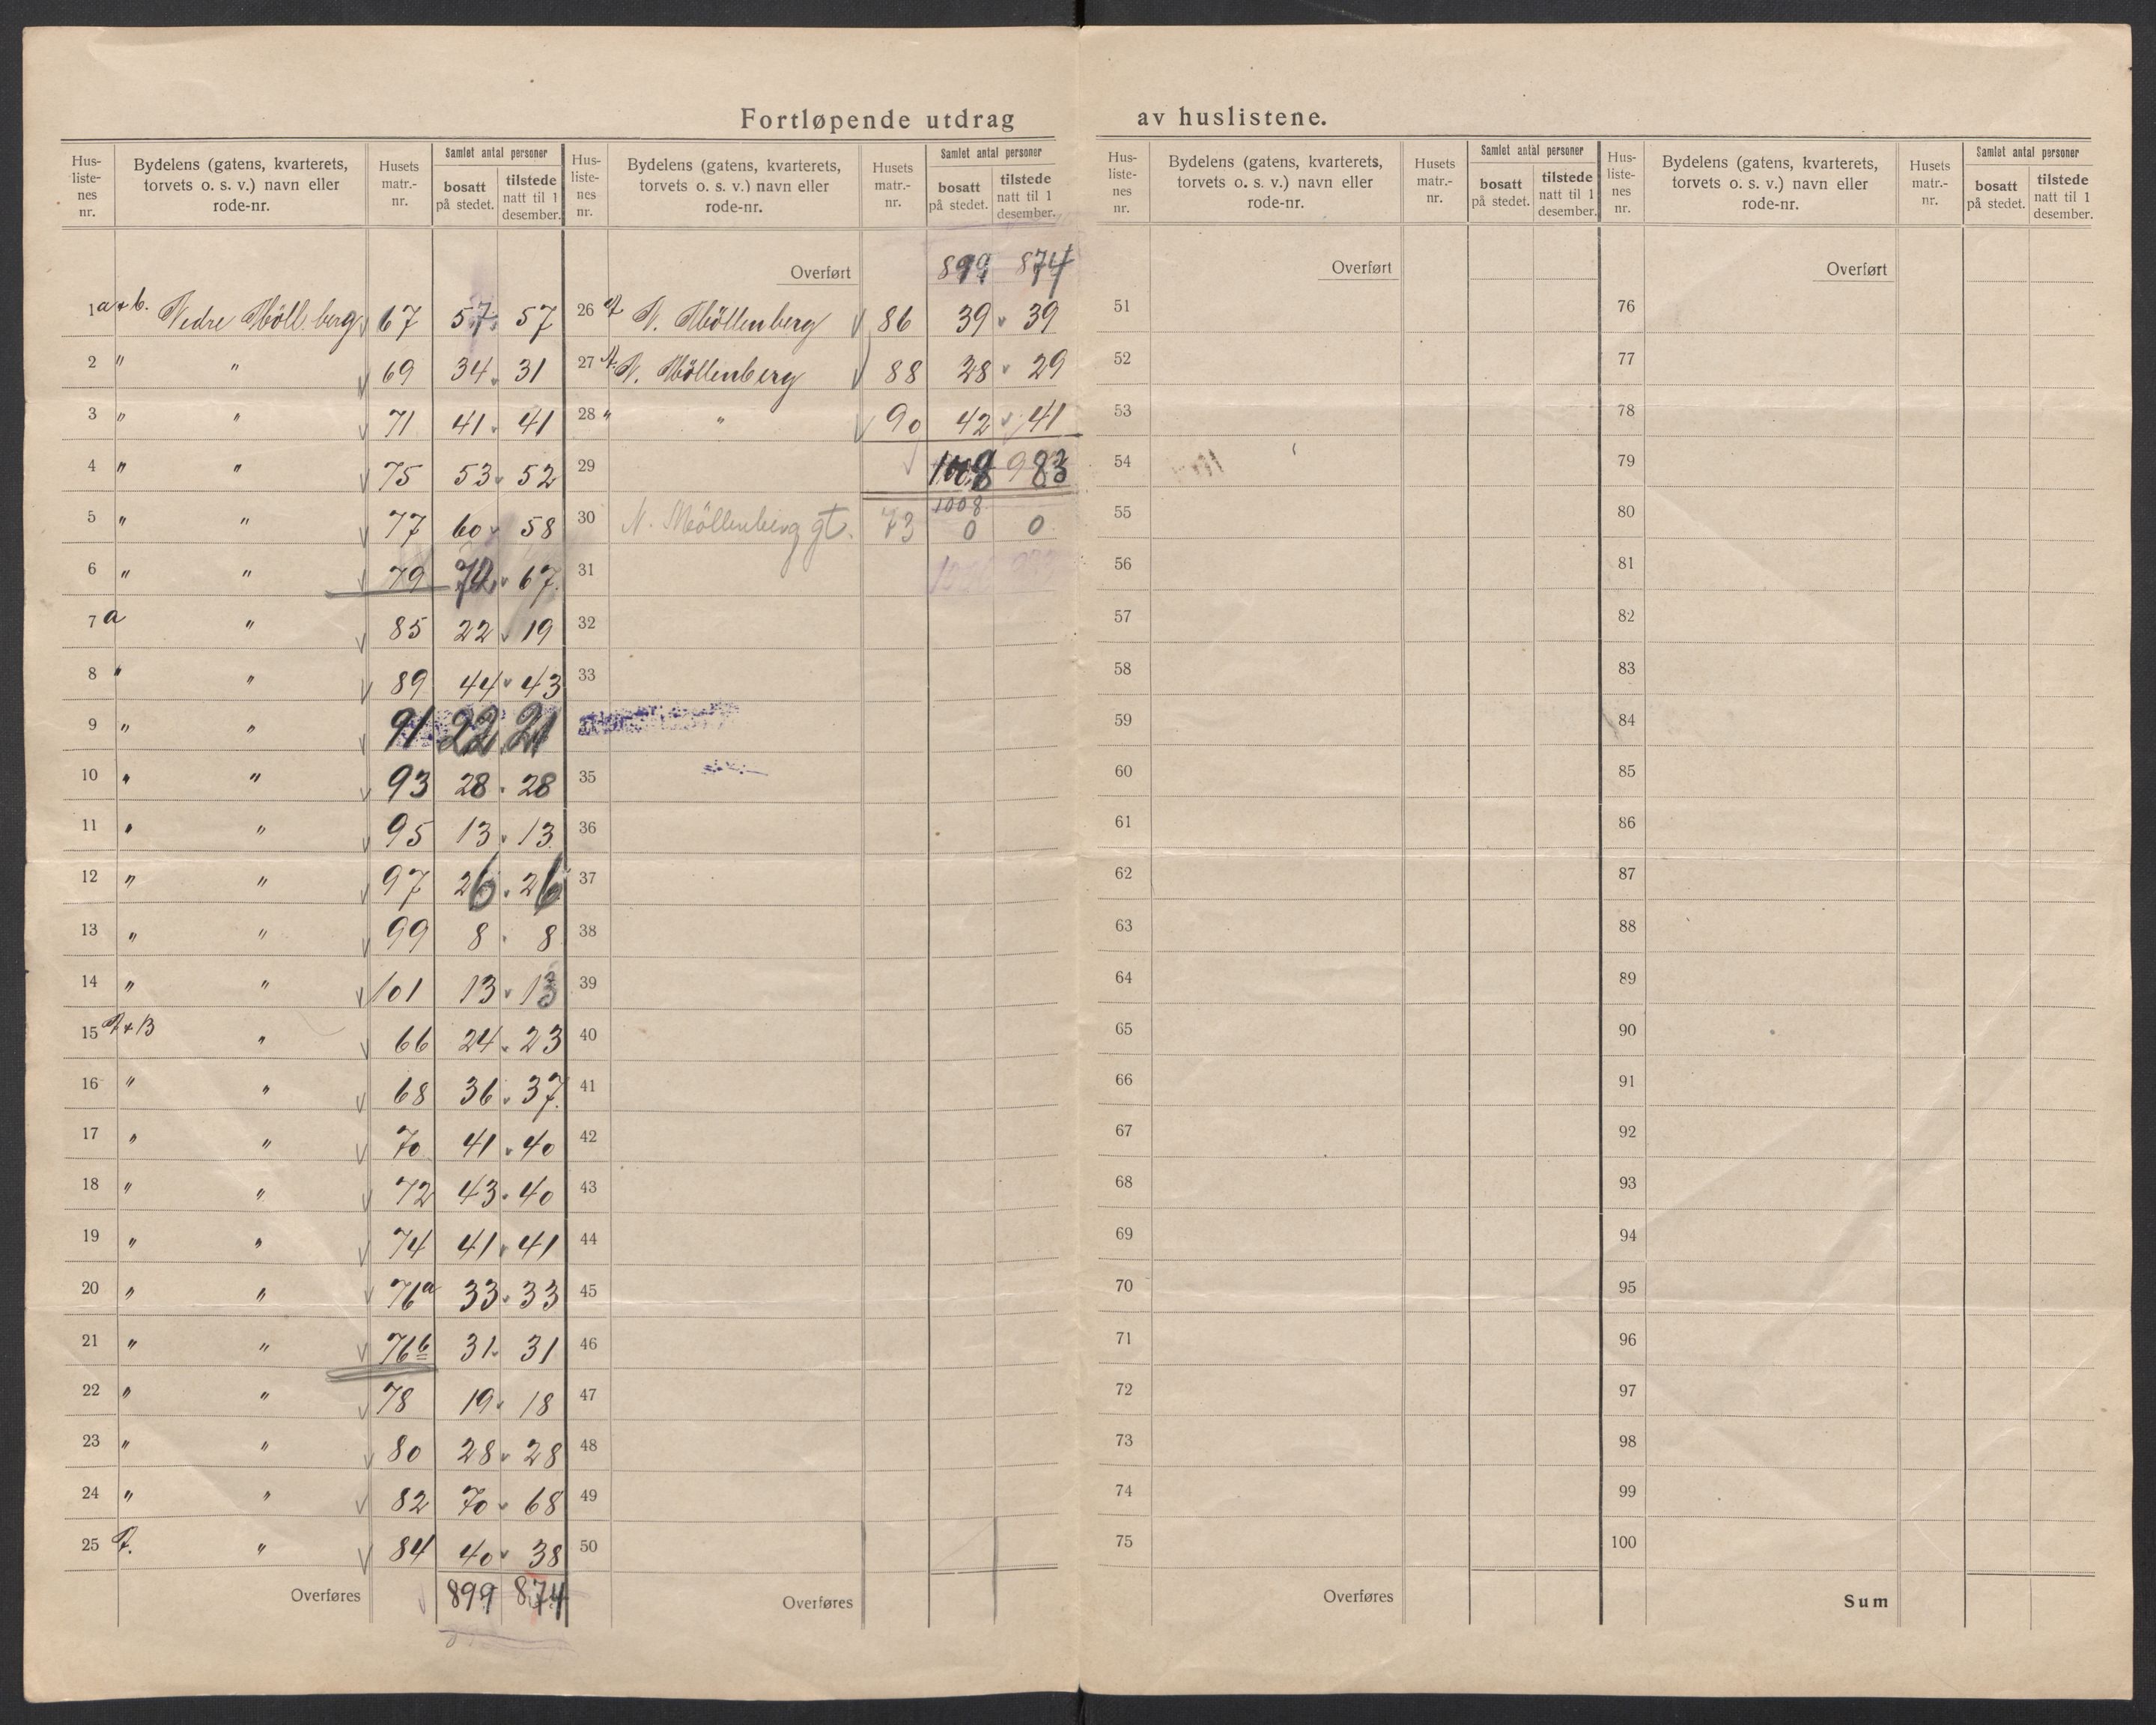 Fortløpende utdrag av huslistene.
Hus-listenes nr. Bydelens (gatens, kvarterets, torvets o. s. v.) navn eller rode-nr. Husets matr.-nr. Samlet antal personer bosatt på stedet. tilstede natt til 1 desember.
1 a + b. Nedre Möll.berg 67 57 57
2 " " 69 34 31
3 " " 71 41 41
4 " " 75 53 52
5 " " 77 60 58
6 " " 79 72 67
7 a " 85 22 19
8 " " 89 44 43
9 " " 91 22 21
10 " " 93 28 28
11 " " 95 13 13
12 " " 97 26 26
13 " " 99 8 8
14 " " 101 13 13
15 + B " 66 24 23
16 " " 68 36 37
17 " " 70 41 40
18 " " 72 43 40
19 " " 74 41 41
20 " " 76a 33 33
21 " " 76b 31 31
22 " " 78 19 18
23 " " 80 28 28
24 " " 82 70 68
25 " 84 40 38
Overføres 899 874
Hus-listenes nr. Bydelens (gatens, kvarterets, torvets o. s. v.) navn eller rode-nr. Husets matr.-nr. Samlet antal personer bosatt på stedet. tilstede natt til 1 desember.
Overført 899 874
26 N. Möllenberg 86 39 39
27 N. Möllenberg 88 28 29
28 " " 90 42 41
29 1008 983
1008
30 N. Möllenberg gt. 73 0 0
31
32
33
35
36
37
38
39
40
41
42
43
44
45
46
47
48
49
50
Overføres
Hus-listenes nr. Bydelens (gatens, kvarterets, torvets o. s. v.) navn eller rode-nr. Husets matr.-nr. Samlet antal personer bosatt på stedet. tilstede natt til 1 desember.
Overført
51
52
53
54
55
56
57
58
59
60
61
62
63
64
65
66
67
68
69
70
71
72
73
74
75
Overføres
Hus-listenes nr. Bydelens (gatens, kvarterets, torvets o. s. v.) navn eller rode-nr. Husets matr.-nr. Samlet antal personer bosatt på stedet. tilstede natt til 1 desember.
Overført
76
77
78
79
80
81
82
83
84
85
86
87
88
89
90
91
92
93
94
95
96
97
98
99
100
Sum